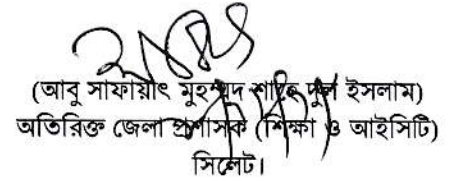 (আবু সাফায়াৎ মুহম্মদ শাহেদুল ইসলাম)
অতিরিক্ত জেলা প্রশাসক (শিক্ষা ও আইসিটি)
সিলেট।